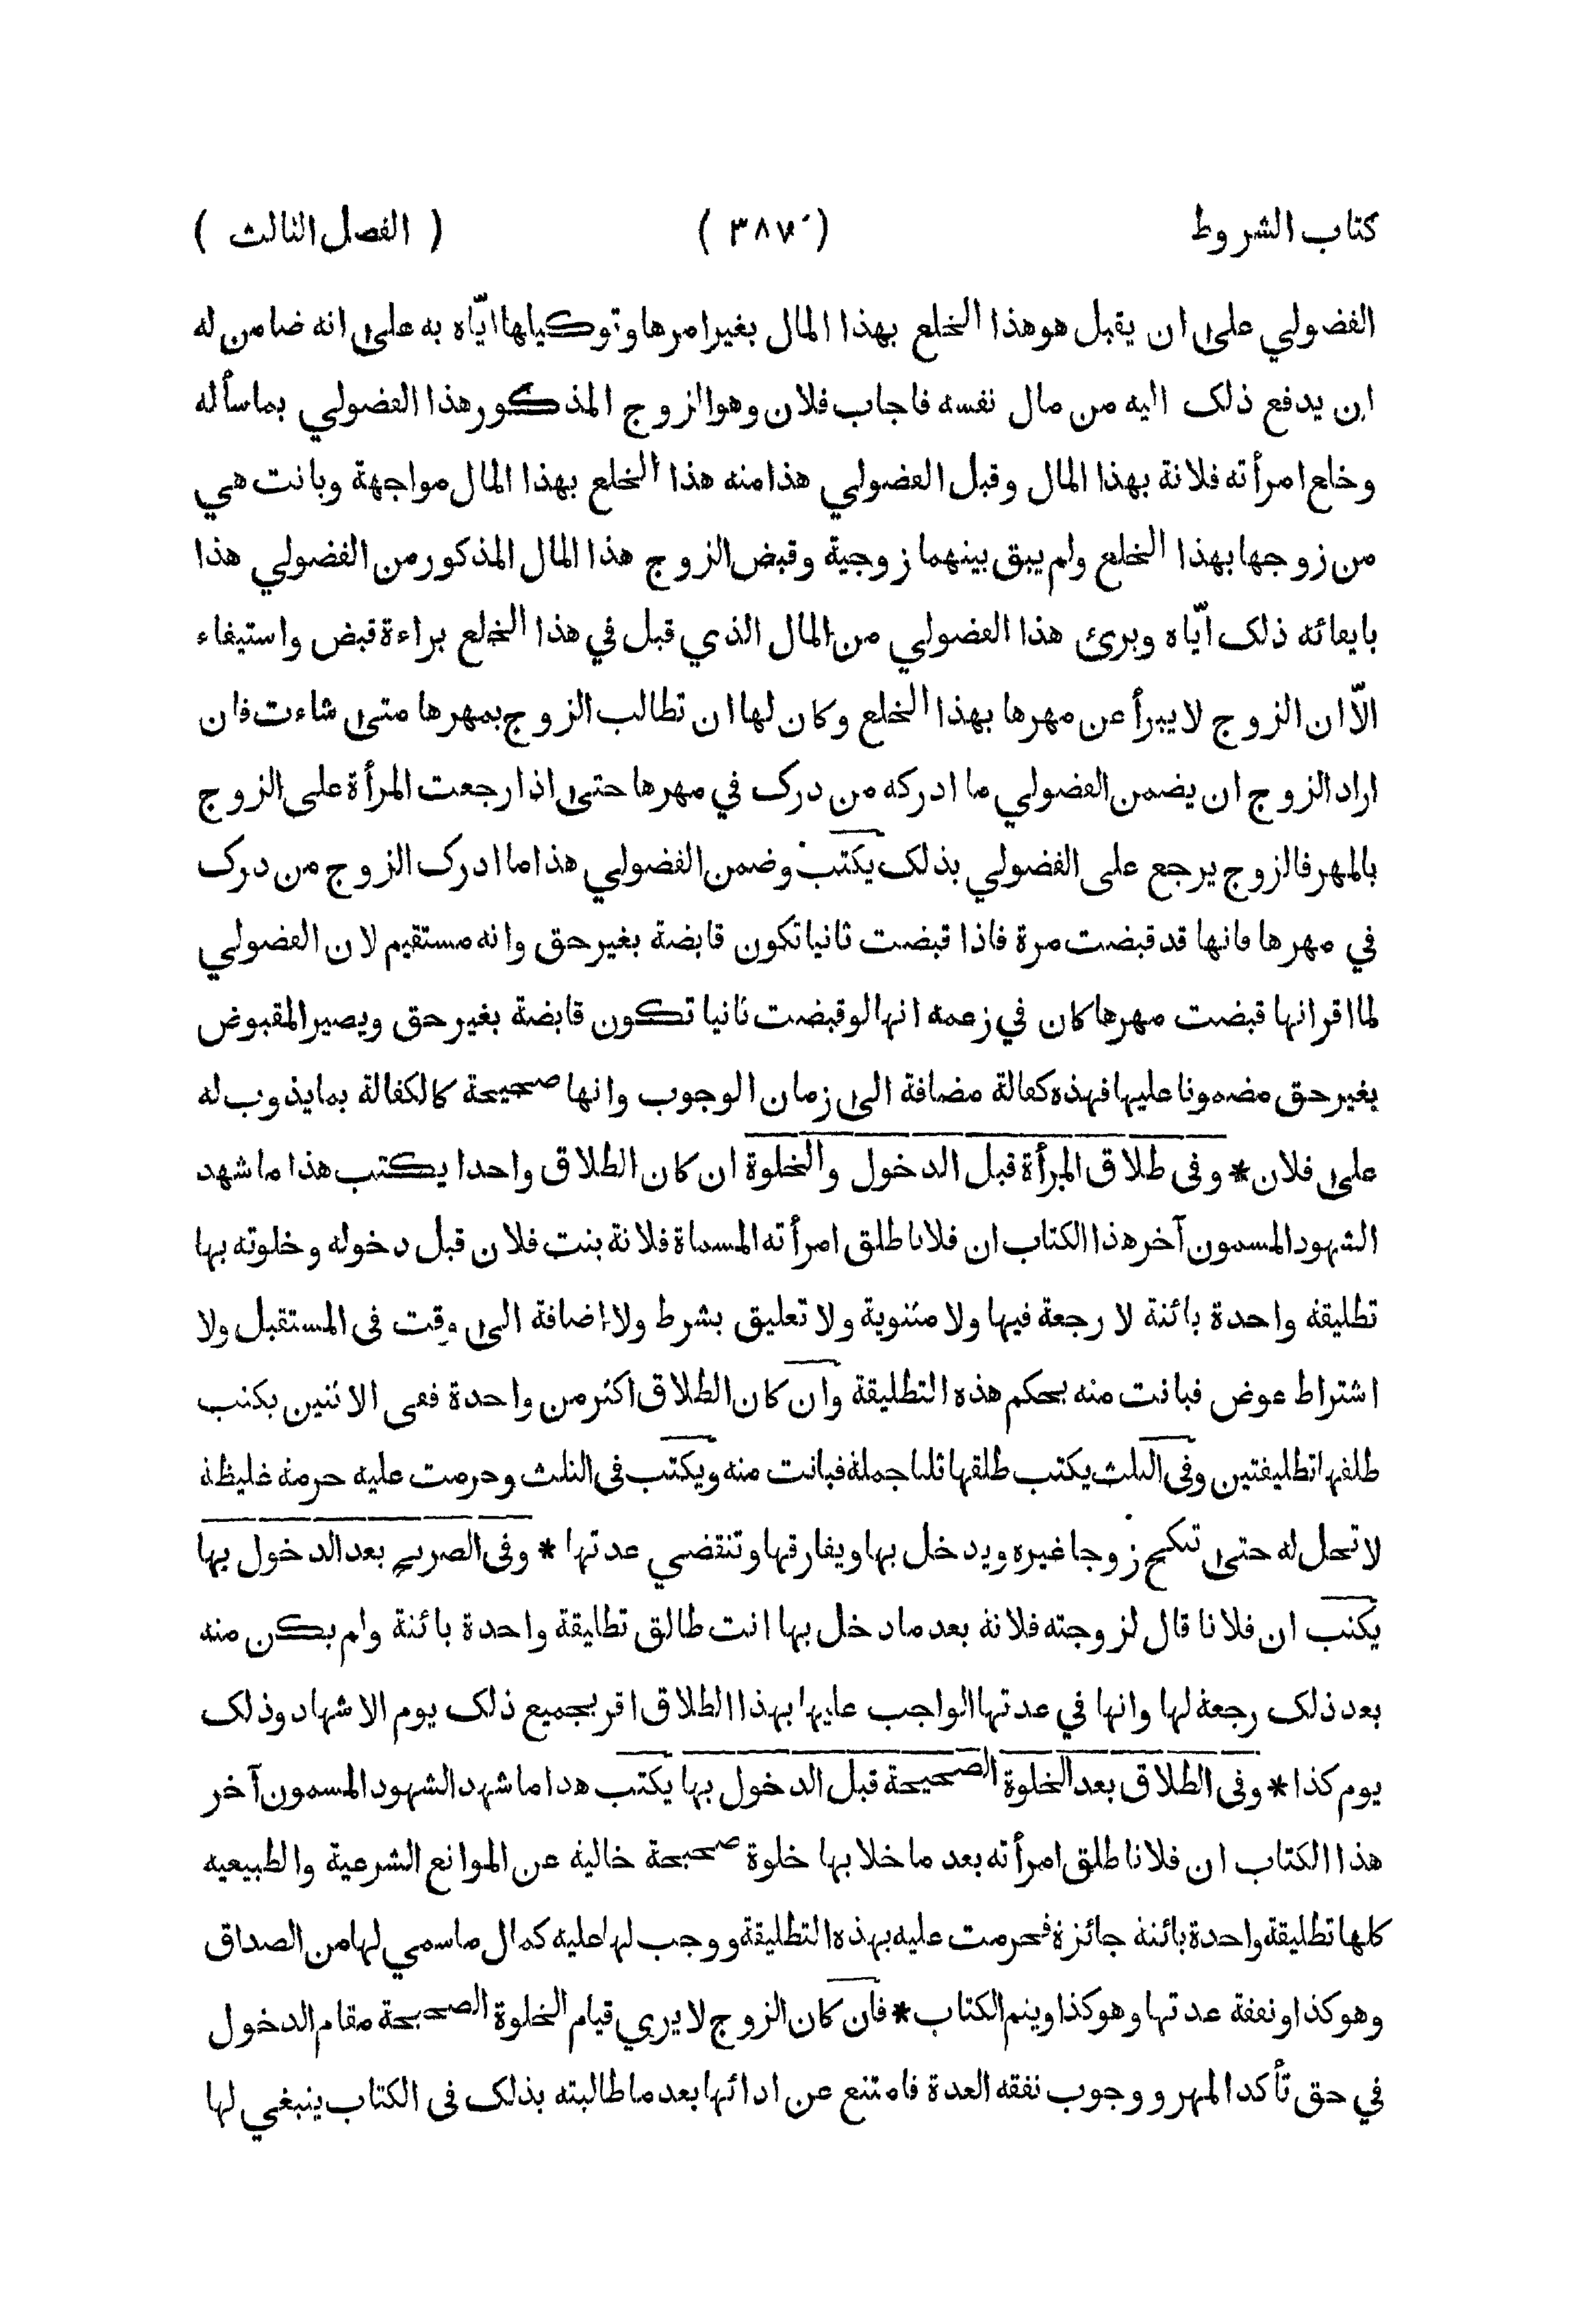 كتاب الشروط ( ٣٨٧ ) ( الفصل الثالث )
الفضولي على ان يقبل هو هذا الخلع بهذا المال بغير امرها وتوكيلها ايّاه به على انه ضامن له
ان يدفع ذلك اليه من مال نفسه فاجاب فلان وهو الزوج المذكور هذا الفضولي بما سأله
وخلع امرأته فلانة بهذا المال وقبل الفضولي هذا منه هذا الخلع بهذا المال مواجهة وبانت هي
من زوجها بهذا الخلع ولم يبق بينهما زوجية وقبض الزوج هذا المال المذكور من الفضولي هذا
بايفائه ذلك ايّاه وبرئ هذا الفضولي من المال الذي قبل في هذا الخلع براءة قبض واستيفاء
الّا ان الزوج لا يبرأ عن مهرها بهذا الخلع وكان لها ان تطالب الزوج بمهرها متى شاءت فان
اراد الزوج ان يضمن الفضولي ما ادركه من درك في مهرها حتى اذا رجعت المرأة على الزوج
بالمهر فالزوج يرجع على الفضولي بذلك يكتب وضمن الفضولي هذا ما ادرك الزوج من درك
في مهرها فانها قد قبضت مرة فاذا قبضت ثانيا تكون قابضة بغير حق وانه مستقيم لان الفضولي
لما اقر انها قبضت مهرها كان في زعمه انها لو قبضت ثانيا تكون قابضة بغير حق ويصير المقبوض
بغير حق مضمونا عليها فهذه كفالة مضافة الى زمان الوجوب وانها صحيحة كالكفالة بما يذوب له
على فلان * وفى طلاق المرأة قبل الدخول والخلوة ان كان الطلاق واحدا يكتب هذا ما شهد
الشهود المسمون آخر هذا الكتاب ان فلانا طلق امرأته المسماة فلانة بنت فلان قبل دخوله وخلوته بها
تطليقة واحدة بائنة لا رجعة فيها ولا مثنوية ولا تعليق بشرط ولا اضافة الى وقت فى المستقبل ولا
اشتراط عوض فبانت منه بحكم هذه التطليقة وان كان الطلاق اكثر من واحدة ففى الاثنين يكتب
طلقها تطليقتين وفى الثلث يكتب طلقها ثلثا جملة فبانت منه ويكتب فى الثلث وحرمت عليه حرمة غليظة
لا تحل له حتى تنكح زوجا غيره ويدخل بها ويفارقها وتنقضي عدتها * وفى الصريح بعد الدخول بها
يكتب ان فلانا قال لزوجته فلانة بعد ما دخل بها انت طالق تطليقة واحدة بائنة ولم يكن منه
بعد ذلك رجعة لها وانها في عدتها الواجب عليها بهذا الطلاق اقر بجميع ذلك يوم الاشهاد وذلك
يوم كذا * وفى الطلاق بعد الخلوة الصحيحة قبل الدخول بها يكتب هذا ما شهد الشهود المسمون آخر
هذا الكتاب ان فلانا طلق امرأته بعد ما خلا بها خلوة صحيحة خالية عن الموانع الشرعية والطبيعيه
كلها تطليقة واحدة بائنة جائزة فحرمت عليه بهذه التطليقة ووجب لها عليه كمال ما سمي لها من الصداق
وهو كذا ونفقة عدتها وهو كذا ويتم الكتاب * فان كان الزوج لا يري قيام الخلوة الصحيحة مقام الدخول
في حق تأكد المهر ووجوب نفقه العدة فامتنع عن ادائها بعد ما طالبته بذلك فى الكتاب ينبغي لها